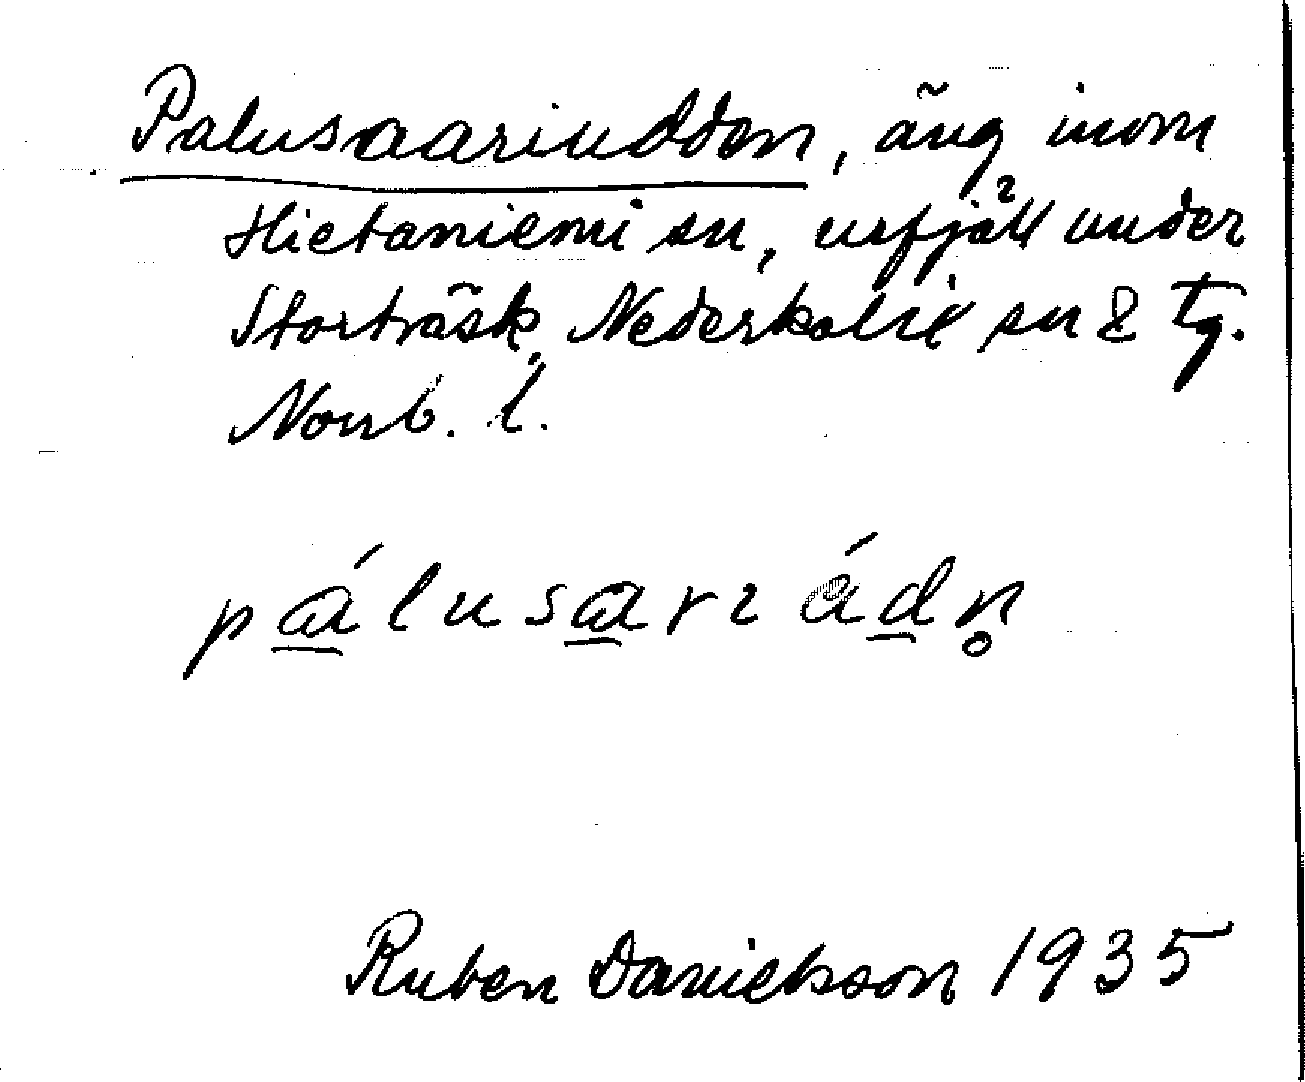 Palusaariudden, äng inom
Hietaniemi sn, urfjäll under
Storträsk, Nederkalix sn & tg.
Norrb. l.
pálusarı ádn̥
Ruben Danielsson 1935